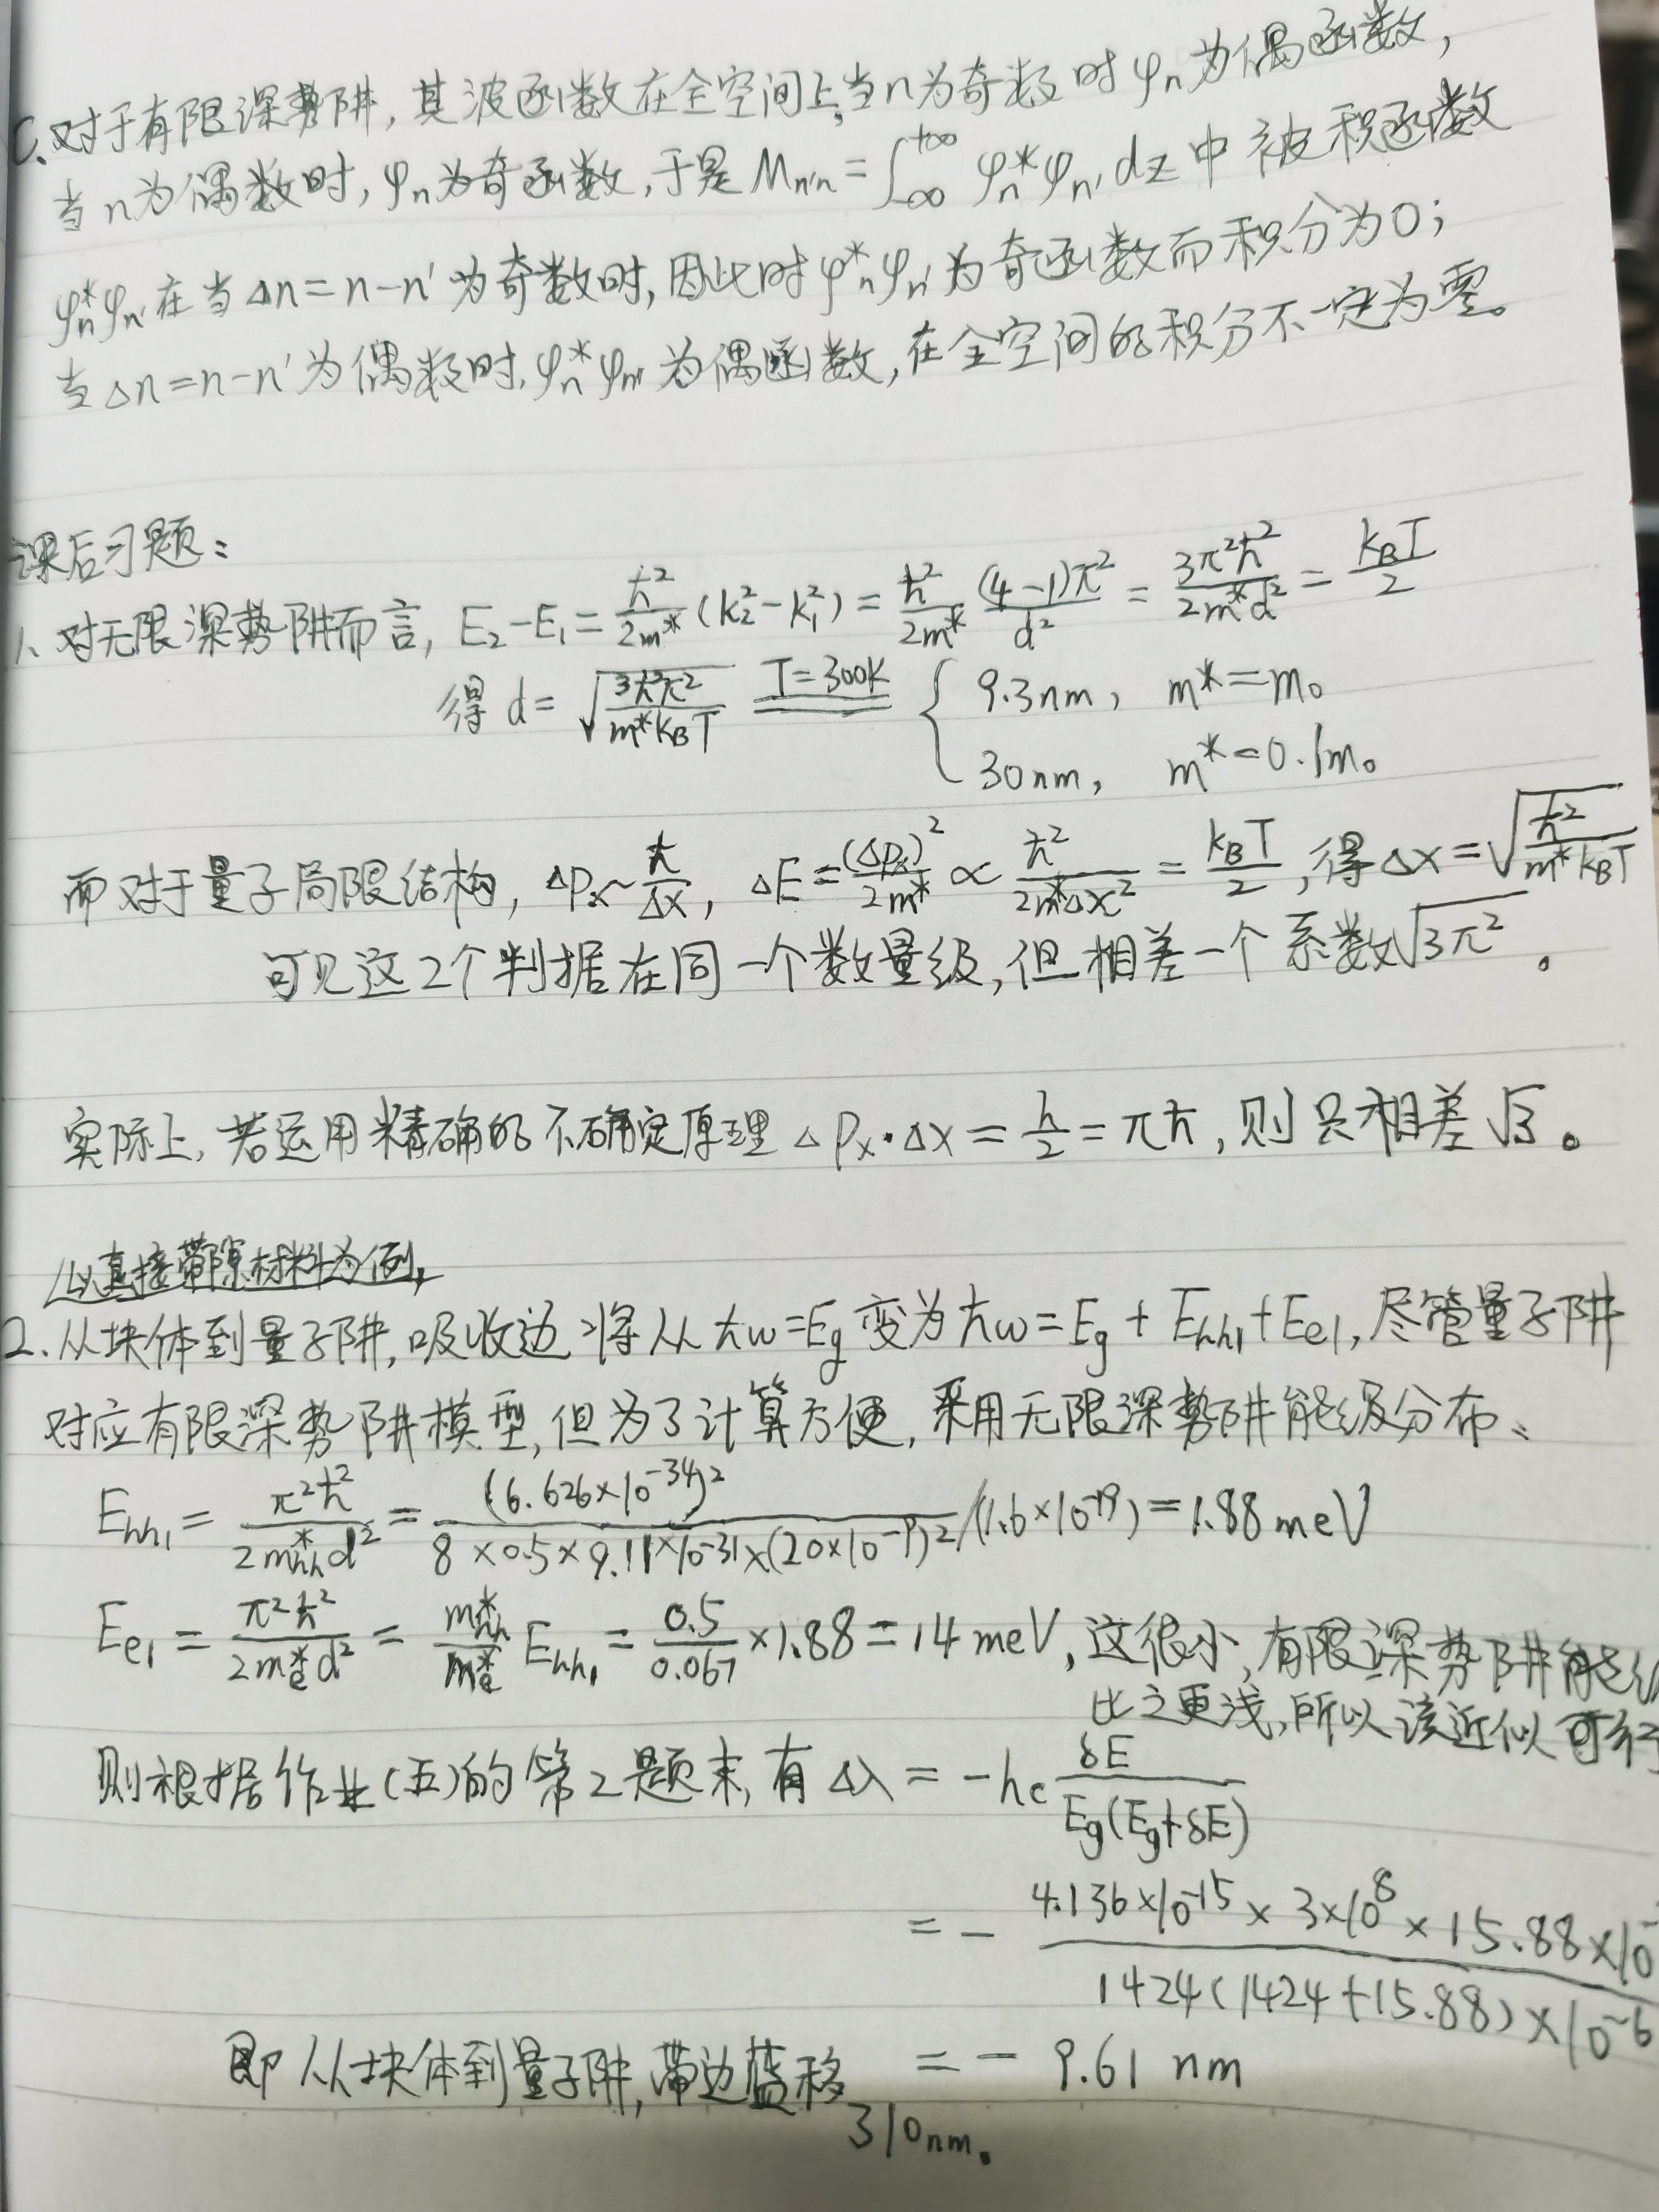 C.对于有限深势阱,其波函数在全空间上,当n为奇数时φₙ为偶函数,
当n为偶数时,φₙ为奇函数,于是 Mₙ'ₙ=∫_{-∞}^{+∞} φₙ*φₙ' dz 中被积函数
φₙ*φₙ' 在当Δn=n-n'为奇数时,因此时φₙ*φₙ'为奇函数而积分为0;
当Δn=n-n'为偶数时,φₙ*φₙ'为偶函数,在全空间的积分不一定为零。
课后习题:
1、对无限深势阱而言, E₂-E₁=ħ²/2m*(k₂²-k₁²)=ħ²/2m* (4-1)π²/d² = 3π²ħ²/2m*d² = k_BT/2
得 d=√(3ħ²π²/m*k_BT) T=300K { 9.3nm, m*=m₀
30nm, m*=0.1m₀
而对于量子局限结构, ΔPₓ~ħ/Δx, ΔE=(ΔPₓ)²/2m* ∝ ħ²/2m*Δx² = k_BT/2, 得Δx=√(ħ²/m*k_BT)
可见这2个判据在同一个数量级,但相差一个系数√3π² 。
实际上,若运用精确的不确定原理 ΔPₓ·Δx=h/2=πħ,则只相差√3。
以直接带隙材料为例,
2.从块体到量子阱,吸收边将从ħω=E_g变为ħω=E_g+E_hh1+E_e1,尽管量子阱
对应有限深势阱模型,但为了计算方便,采用无限深势阱能级分布、
E_hh1=π²ħ²/2m*_hh d²=(6.626×10⁻³⁴)²/8×0.5×9.11×10⁻³¹×(20×10⁻⁹)²/(1.6×10⁻¹⁹)=1.88meV
E_e1=π²ħ²/2m*_e d²=m*_hh/m*_e E_hh1=0.5/0.067×1.88=14meV,这很小,有限深势阱能级
比之更浅,所以该近似可行
则根据作业(五)的第2题末,有Δλ=-hc δE/E_g(E_g+δE)
=- 4.136×10⁻¹⁵×3×10⁸×15.88×10⁻/1424(1424+15.88)×10⁻⁶
=- 9.61 nm
即从块体到量子阱,带边蓝移
310nm。